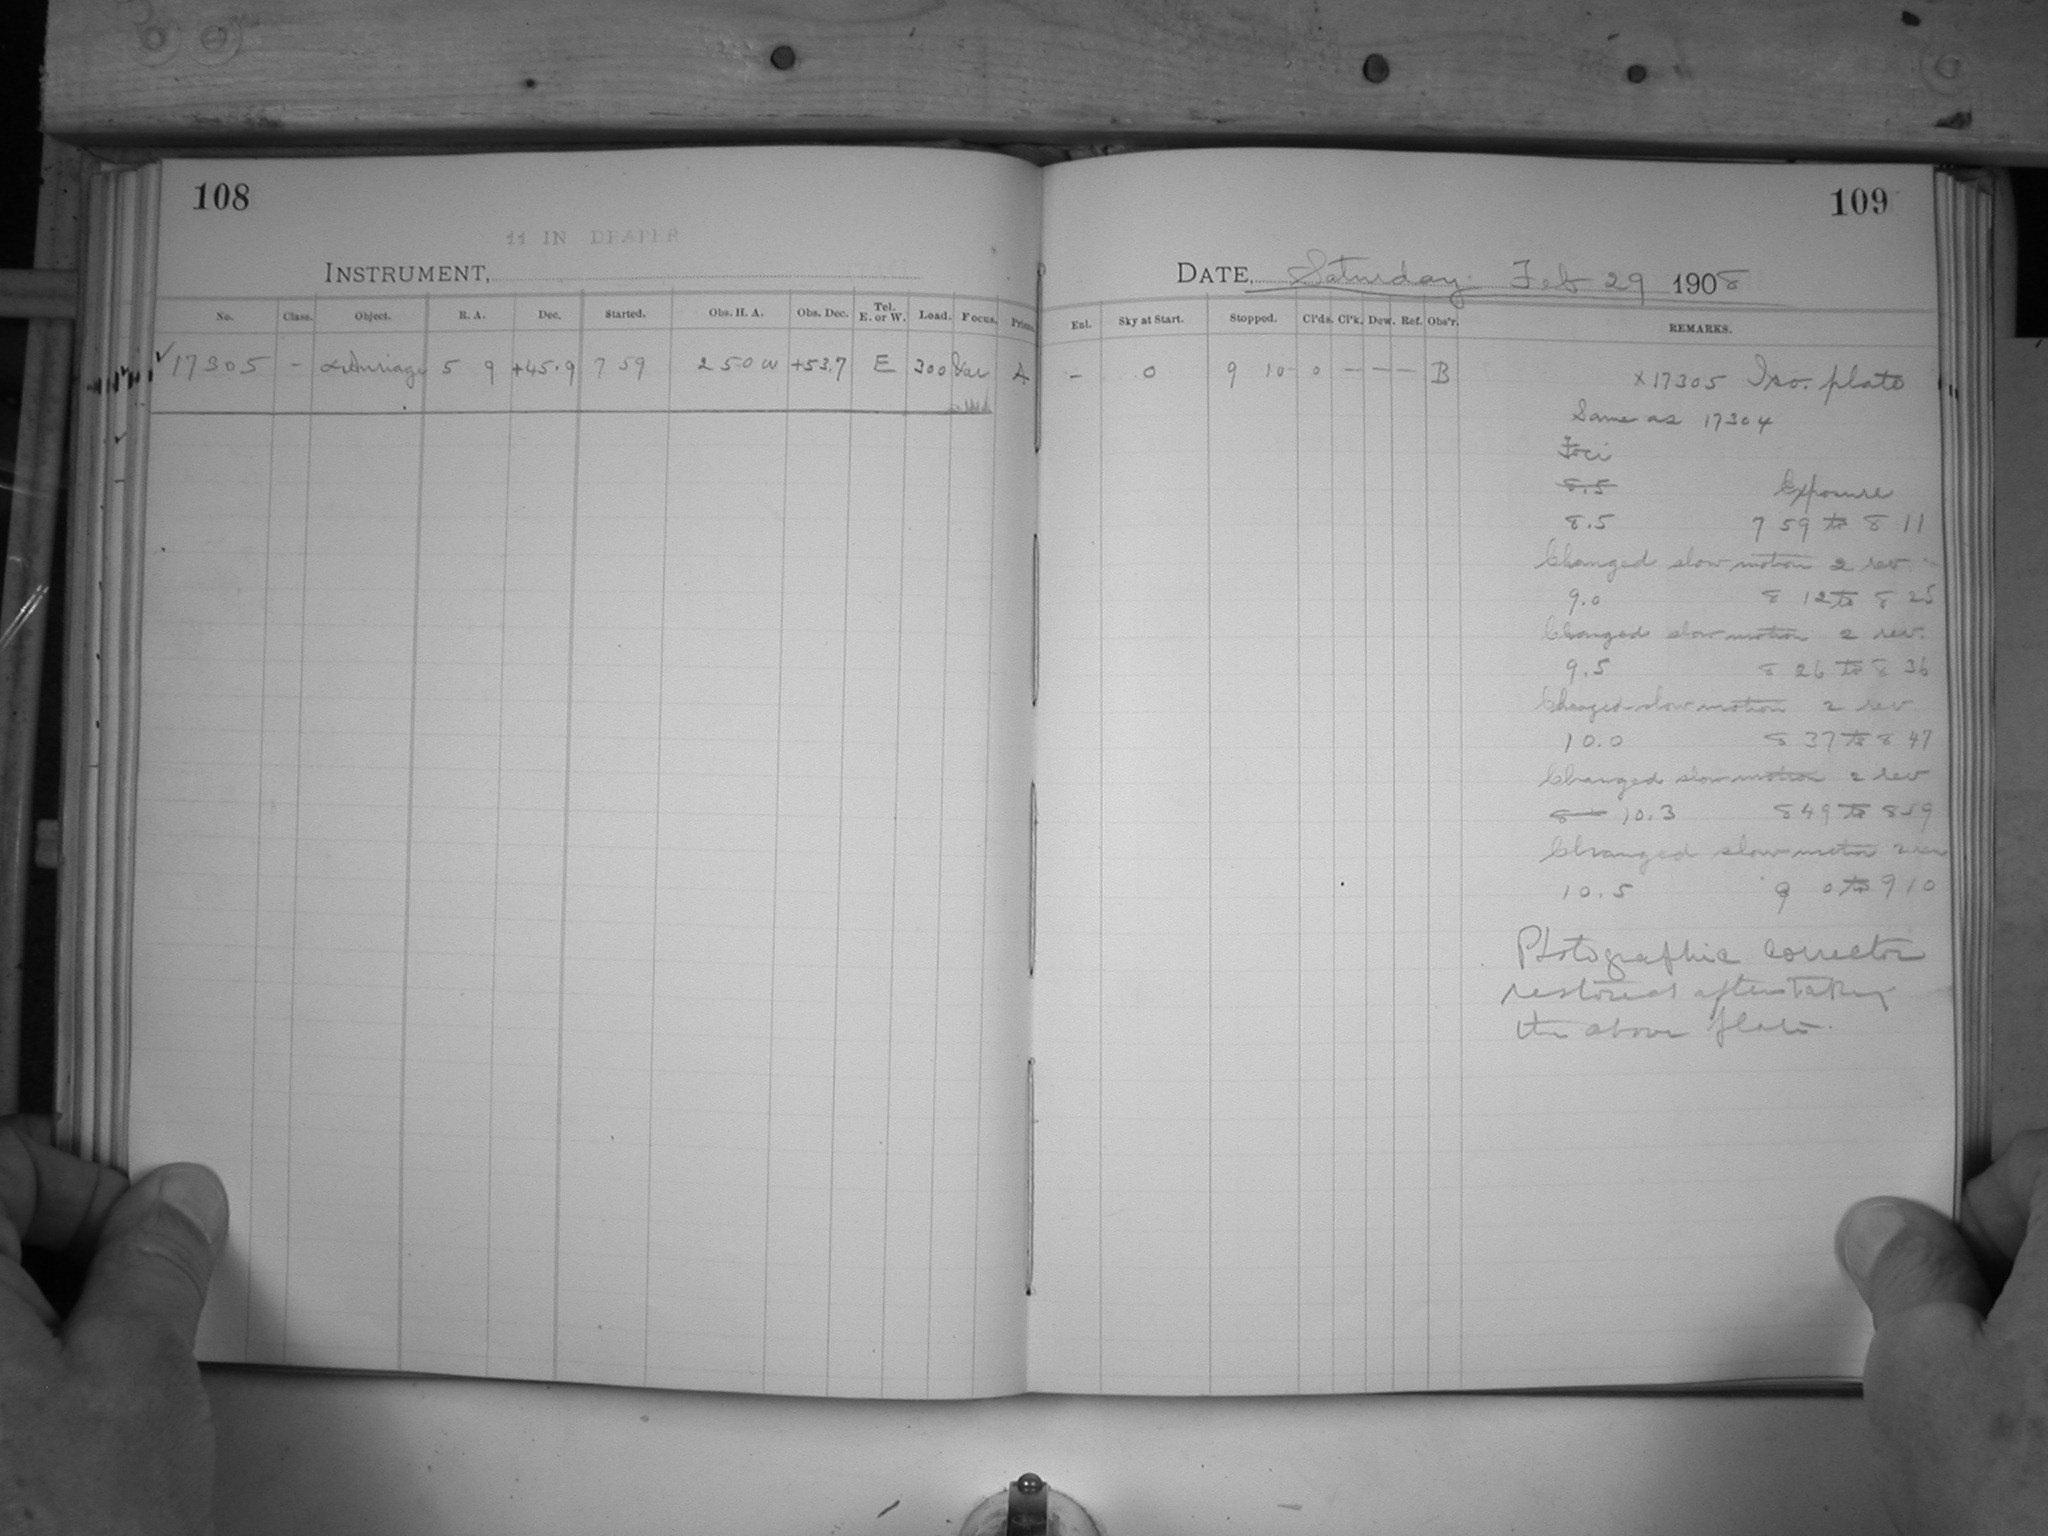 108
11 IN DRAPER
INSTRUMENT,
No. Class. Object. R. A. Dec. Started. Obs. H. A. Obs. Dec. Tel. E. or W. Load. Focus. Prism.
✓17305 – α Aurigae 5 9 +45.9 7 59 2 50 W +53.7 E 300 Var A
109
DATE, Saturday Feb 29 1908
Enl. Sky at Start. Stopped. Cl'ds. Cl'k. Dew. Ref. Obs'r. REMARKS.
– 0 9 10 0 – – – B
x17305 Iso. plate
Same as 17304
Foci
8.5 Exposure
8.5 7 59 to 8 11
Changed slow motion 2 rev.
9.0 8 12 to 8 25
Changed slow motion 2 rev.
9.5 8 26 to 8 36
Changed slow motion 2 rev.
10.0 8 37 to 8 47
Changed slow motion 2 rev
8 10.3 8 49 to 8 59
Changed slow motion 2 rev
10.5 9 0 to 9 10
Photographic corrector
restored after taking
the above plate.